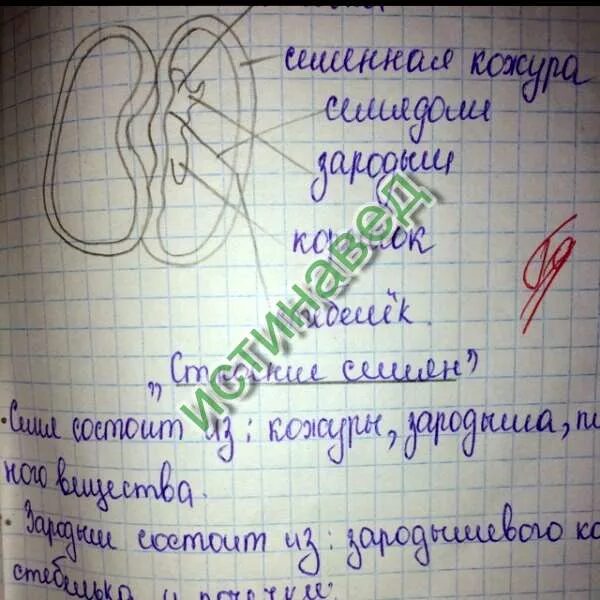 семенная кожура
семядоли
зародыш
корешок
стебелёк.
"Строение семян"
• Семя состоит из: кожуры, зародыша, пи
ного вещества.
• Зародыш состоит из: зародышевого ко
стебелька и почечки.
истинавед